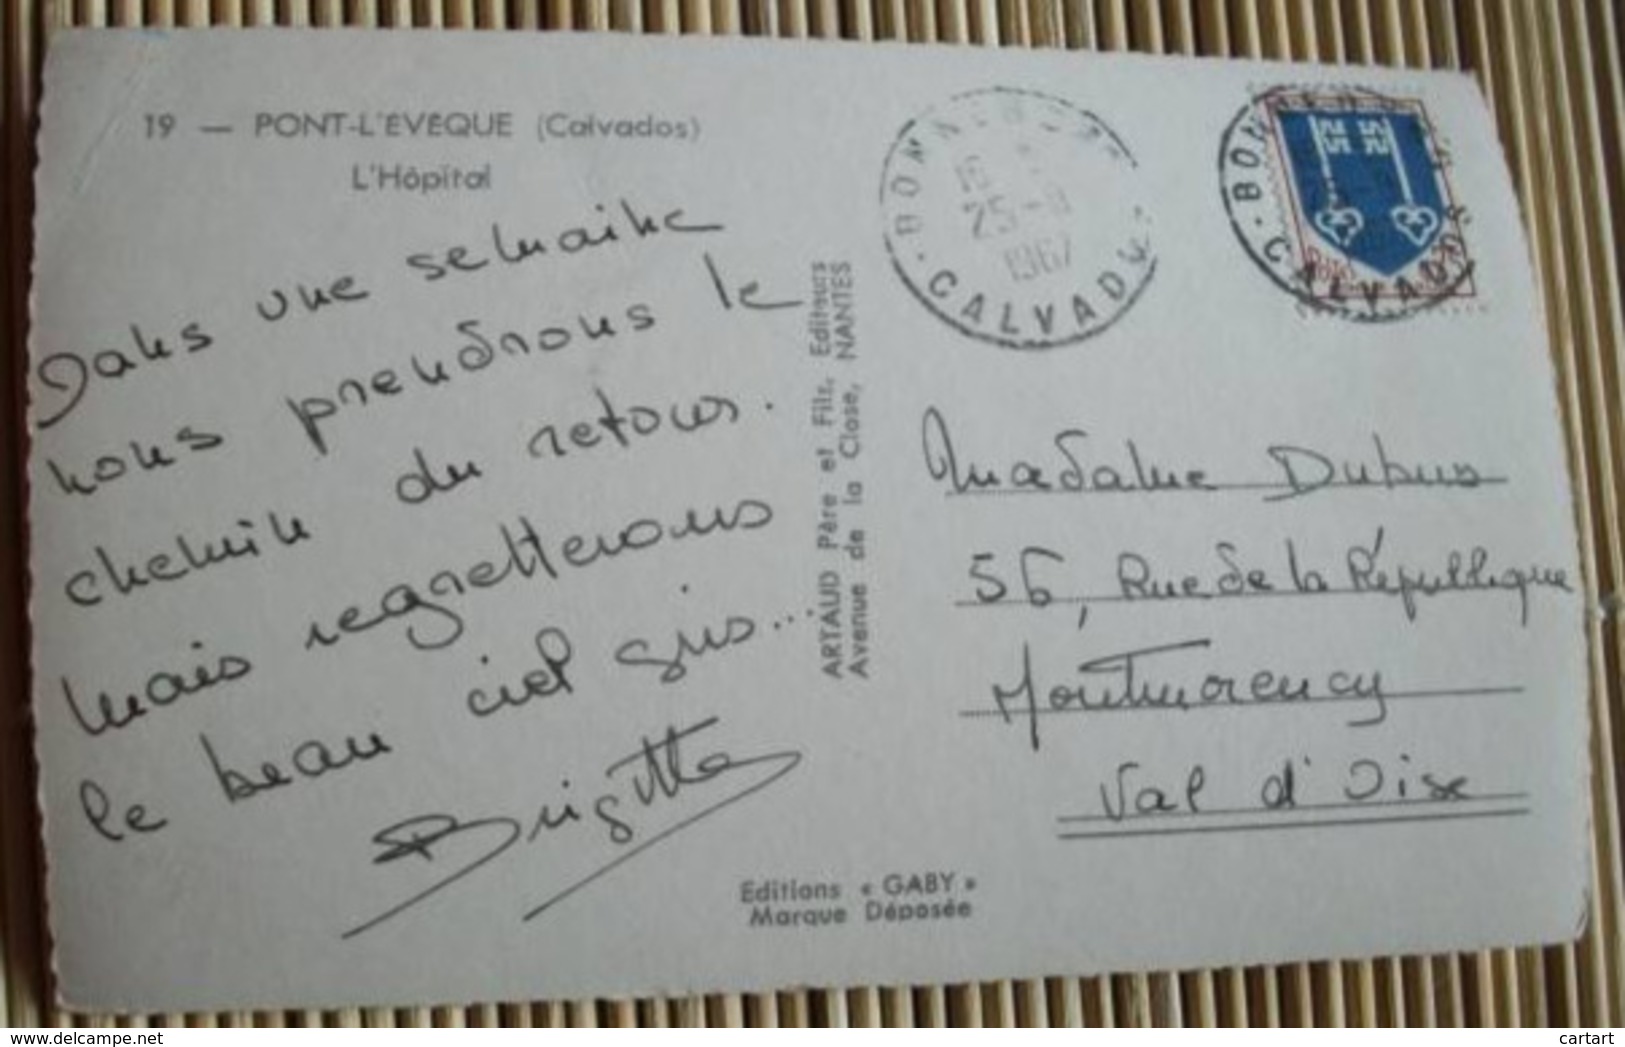 19 — PONT-L'ÉVÊQUE (Calvados)
L'Hôpital
Dans une semaine
nous prendrons le
chemin du retour.
Mais regretterons
le beau ciel gris...
Brigitte
ARTAUD Père et Fils, Editeurs
Avenue de la Close, NANTES
16
25-8
1967
CALVADOS
CALVADOS
Madame Dubus
56, Rue de la République
Montmorency
Val d'Oise
Editions « GABY »
Marque Déposée
delcampe.net
cartart